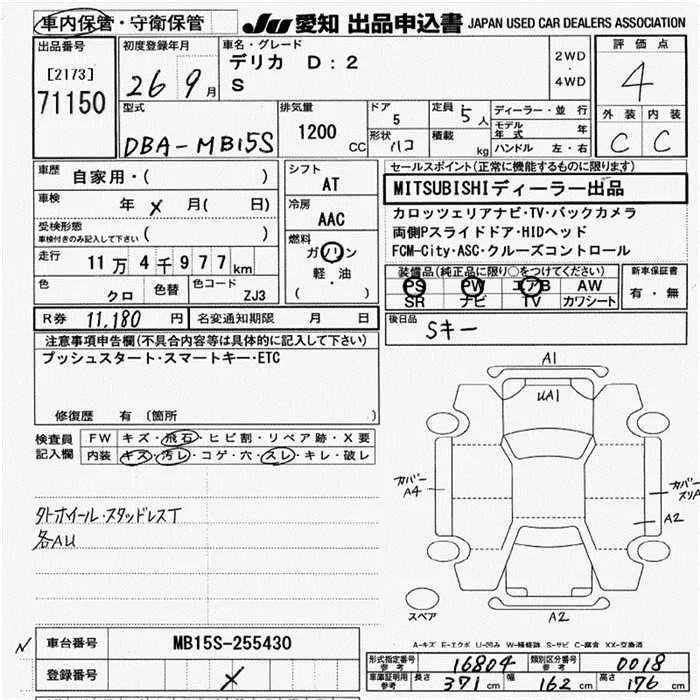 車内保管・守衛保管
JU 愛知 出品申込書 JAPAN USED CAR DEALERS ASSOCIATION
出品番号
[2173]
71150
初度登録年月
26 9月
車名・グレード
デリカ D:2
S
2WD
・
4WD
評価点
4
外装 内装
C C
型式
DBA-MB15S
排気量
1200 CC
ドア
5
形状 ハコ
定員 5人
積載 kg
ディーラー・並行
モデル年式 年
ハンドル 左・右
車歴 自家用・( )
車検 年 × 月( 日)
受検形態
車検付きのみ記入して下さい ( )
走行 11万4千977km
色 クロ
色替
色コード ZJ3
シフト
AT
冷房
AAC
燃料
ガソリン
軽・油
( )
セールスポイント(正常に機能するものに限ります)
MITSUBISHIディーラー出品
カロッツェリアナビ・TV・バックカメラ
両側Pスライドドア・HIDヘッド
FCM-City・ASC・クルーズコントロール
装備品(純正品に限り○をつけてください)
PS PW エアB AW
SR ナビ TV カワシート
新車保証書
有・無
R券 11,180 円
名変通知期限 月 日
後日品
Sキー
注意事項申告欄(不具合内容等は具体的に記入して下さい)
プッシュスタート・スマートキー・ETC
修復歴 有 (箇所 )
検査員
記入欄
FW キズ・飛石・ヒビ割・リペア跡・X要
内装 キズ・汚レ・コゲ・穴・スレ・キレ・破レ
タトホイール・スタッドレスT
各AU
A1
UA1
カバー
A4
カバー
スリA
A2
スペア
A2
A-キズ E-エクボ U-凹み W-補修跡 S-サビ C-腐食 XX-交換済
車台番号 MB15S-255430
登録番号 ×
型式指定番号
参考
16804
類別区分番号
参考
0018
車庫証明用
参考
長さ 371 cm 幅 162 cm 高さ 176 cm